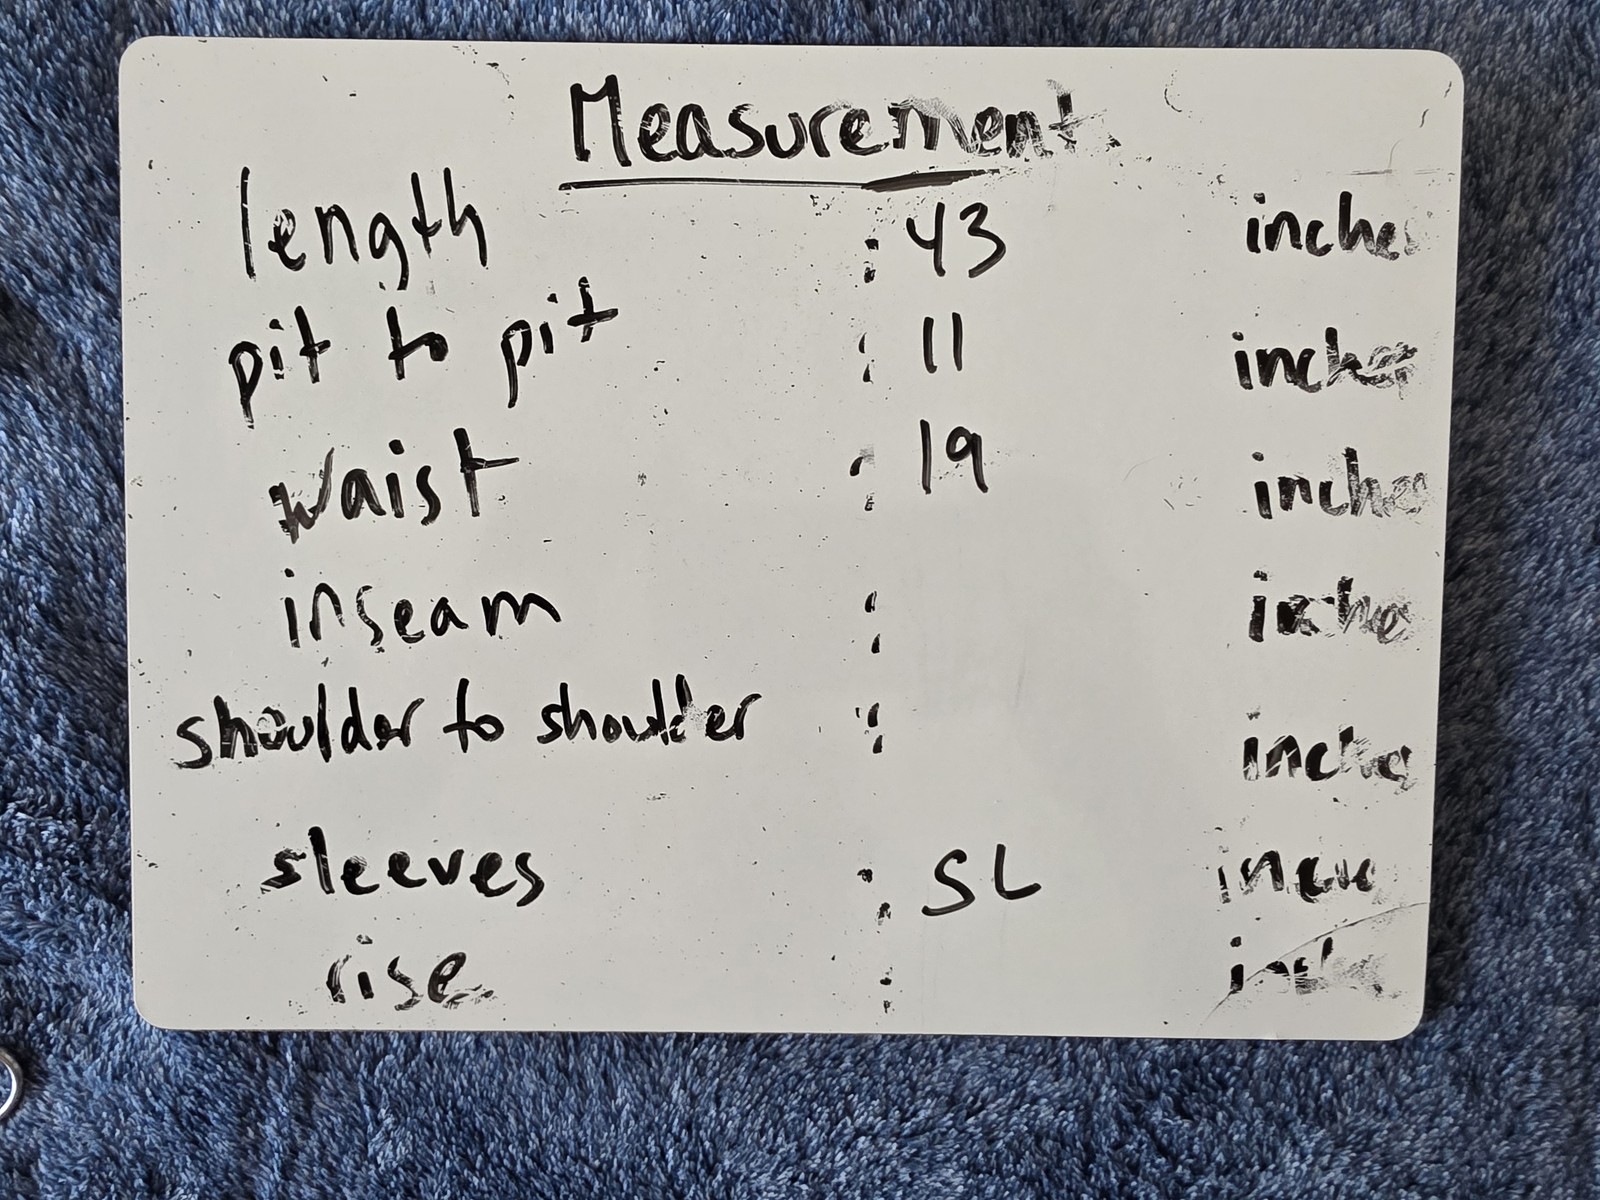 Measurement
length : 43 inches
pit to pit : 11 inches
waist : 19 inches
inseam : inches
shoulder to shoulder : inches
sleeves : SL
rise :